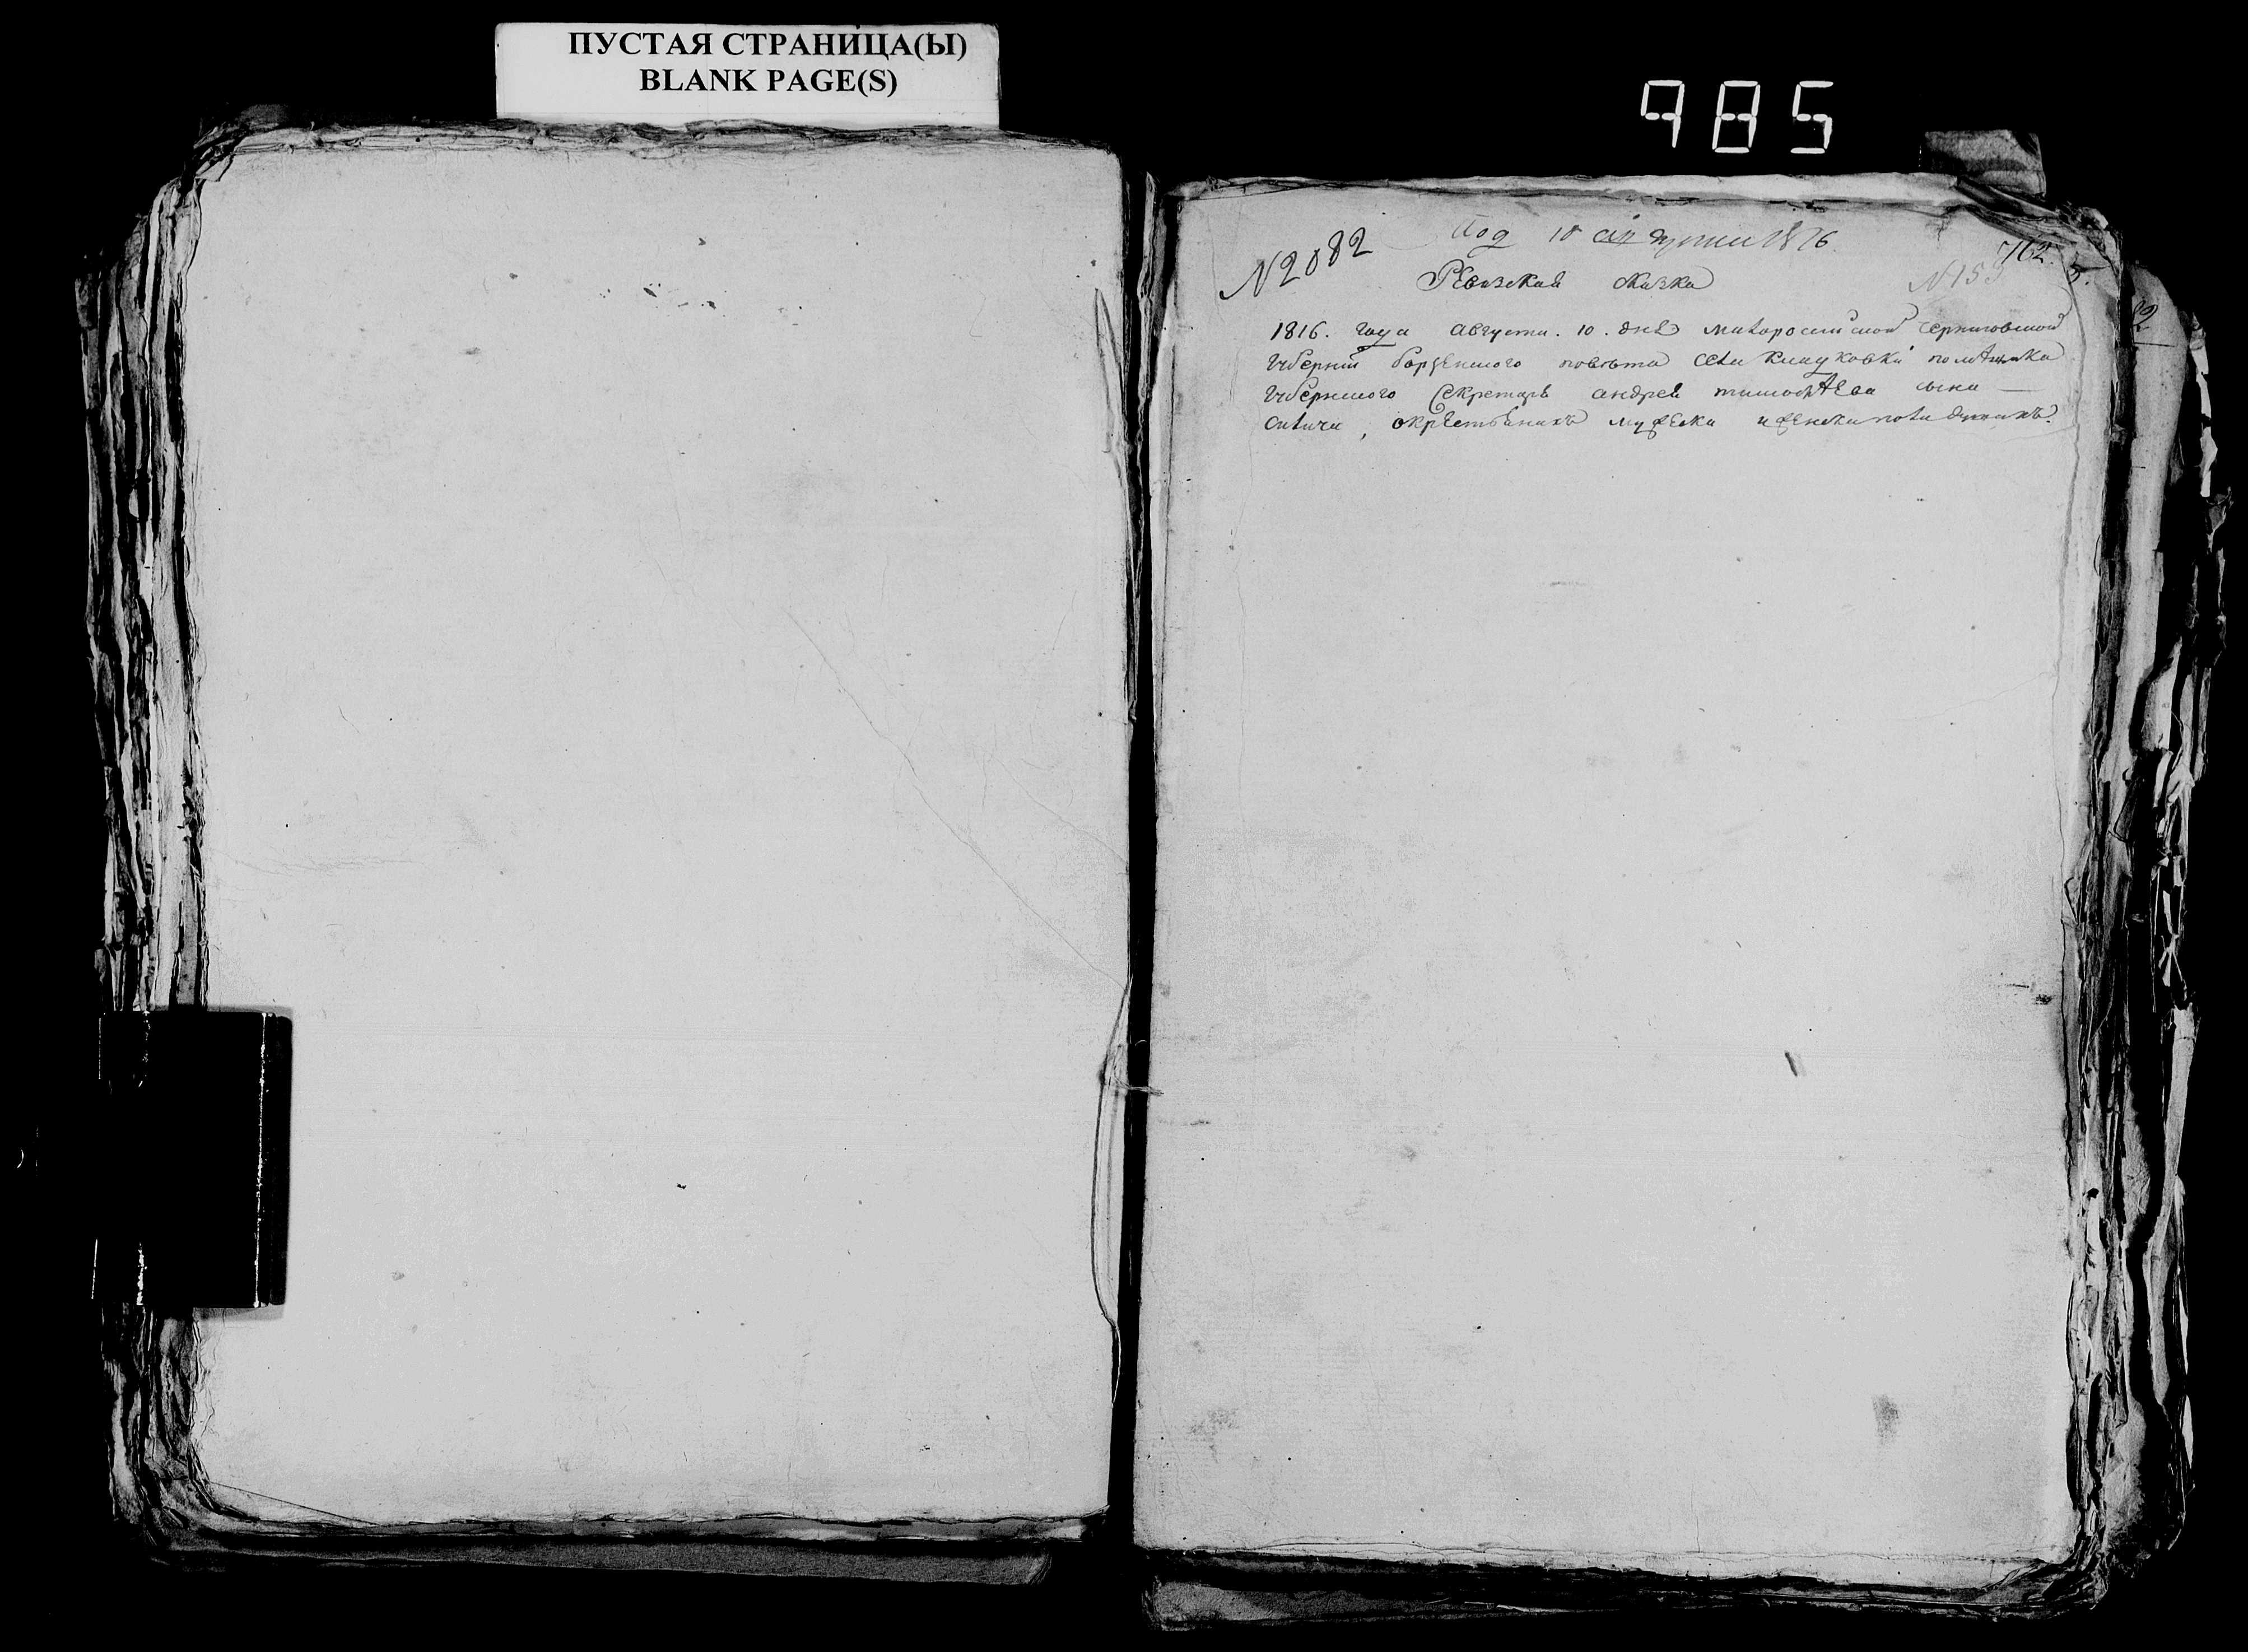 ПУСТАЯ СТРАНИЦА(Ы)
BLANK PAGE(S)
985
Под 10 августа 1816
№2082
762.
№155
Ревизская сказка
1816. года августа. 10. дня малоросийской черниговской
губернии борзенского повета села кладковки помещика
губернского Секретаря андрея тимофеева сына —
силича, окрестьянахъ мужеска иженска пола душахъ.